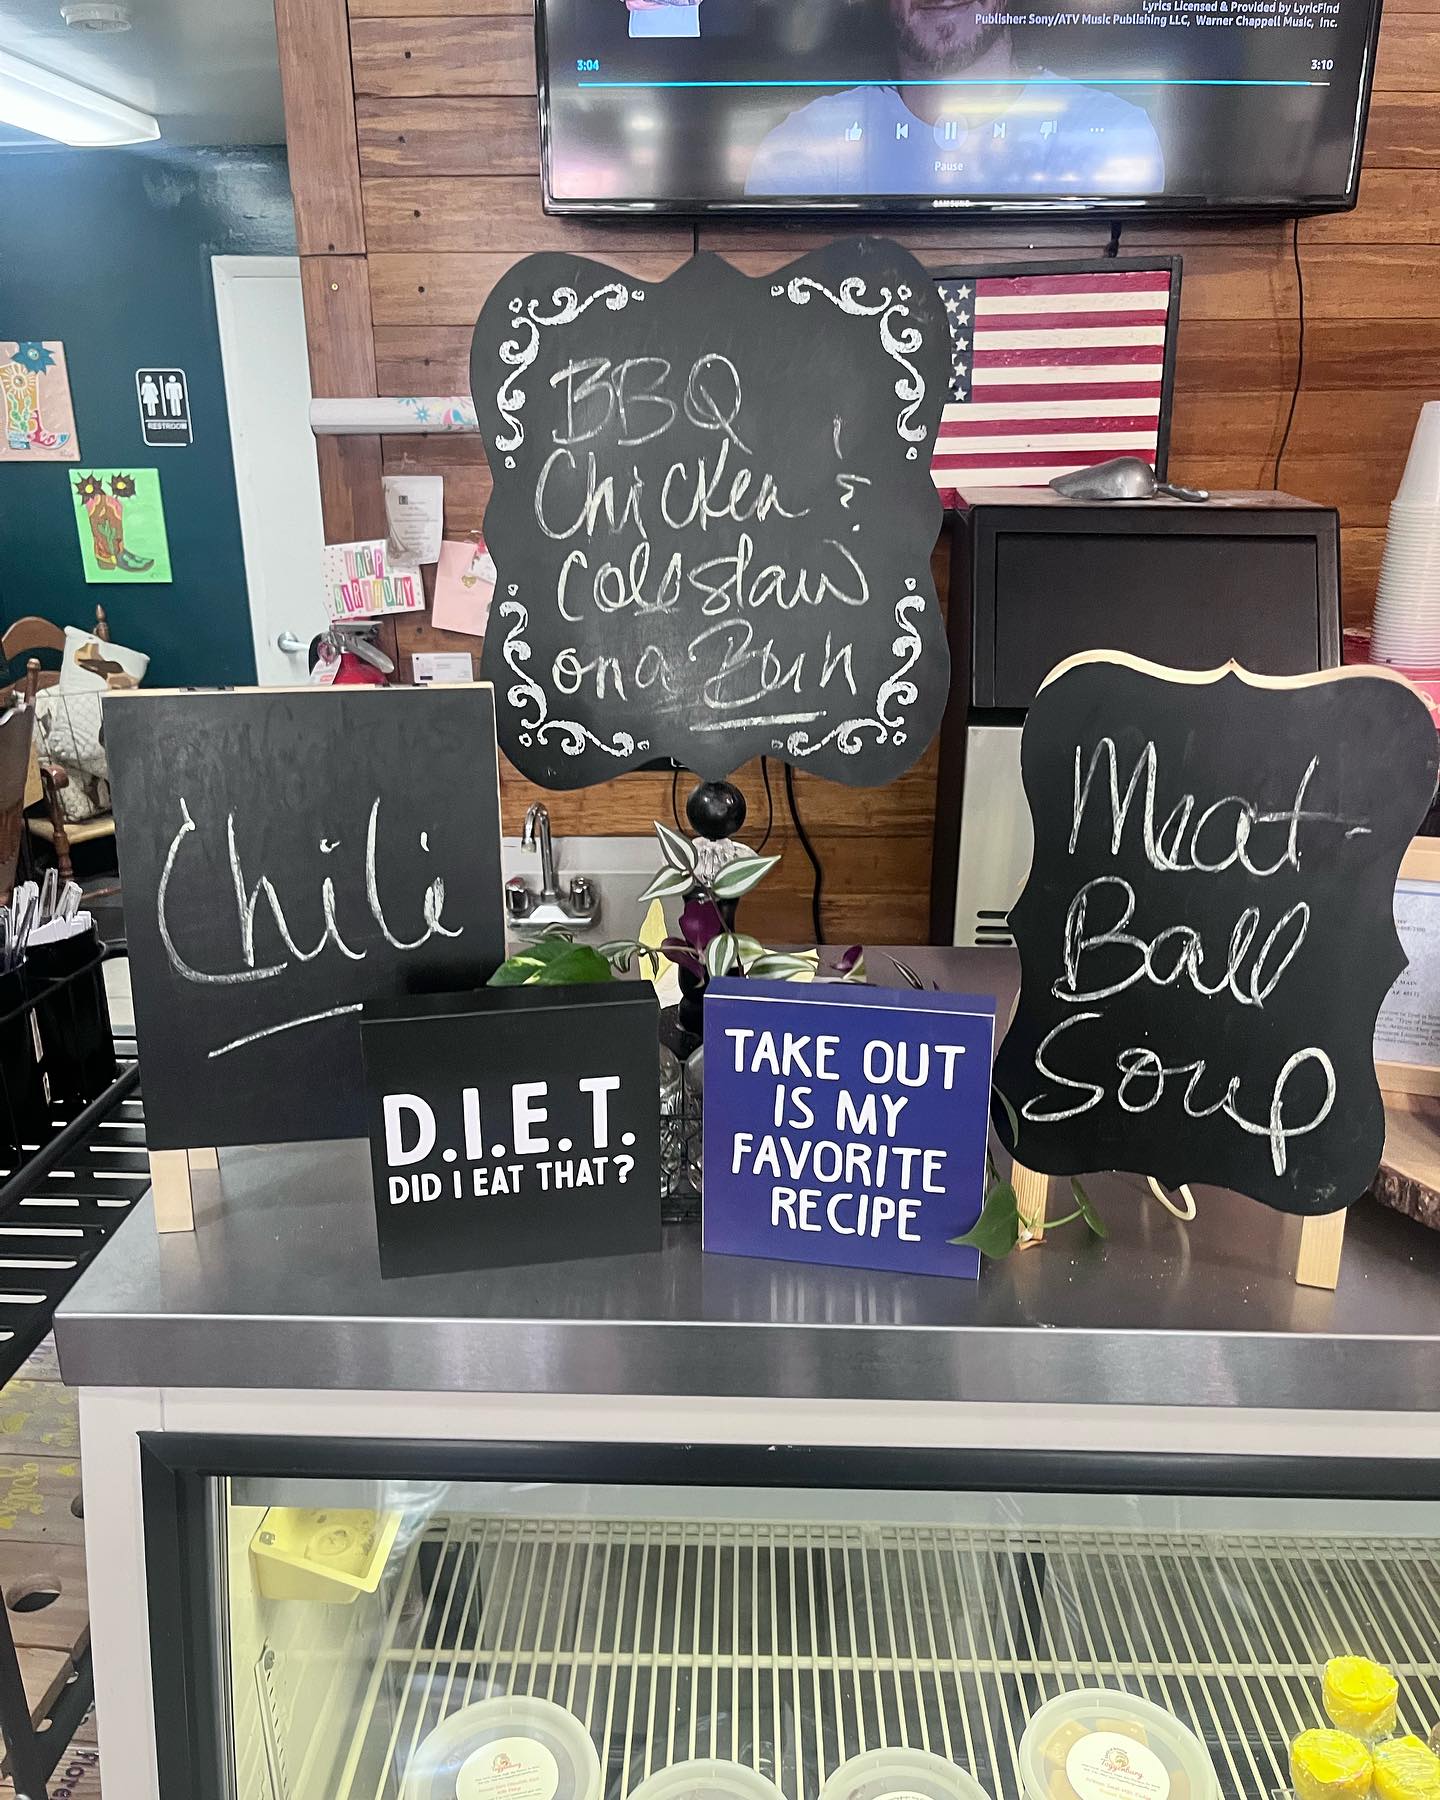 Lyrics Licensed & Provided by LyricFind
Publisher: Sony/ATV Music Publishing LLC, Warner Chappell Music, Inc.
3:04
3:10
Pause
SAMSUNG
RESTROOM
HAPPY
BIRTHDAY
BBQ
Chicken &
Coleslaw
on a Bun
Chili
Meat
Ball
Soup
D.I.E.T.
DID I EAT THAT?
TAKE OUT
IS MY
FAVORITE
RECIPE